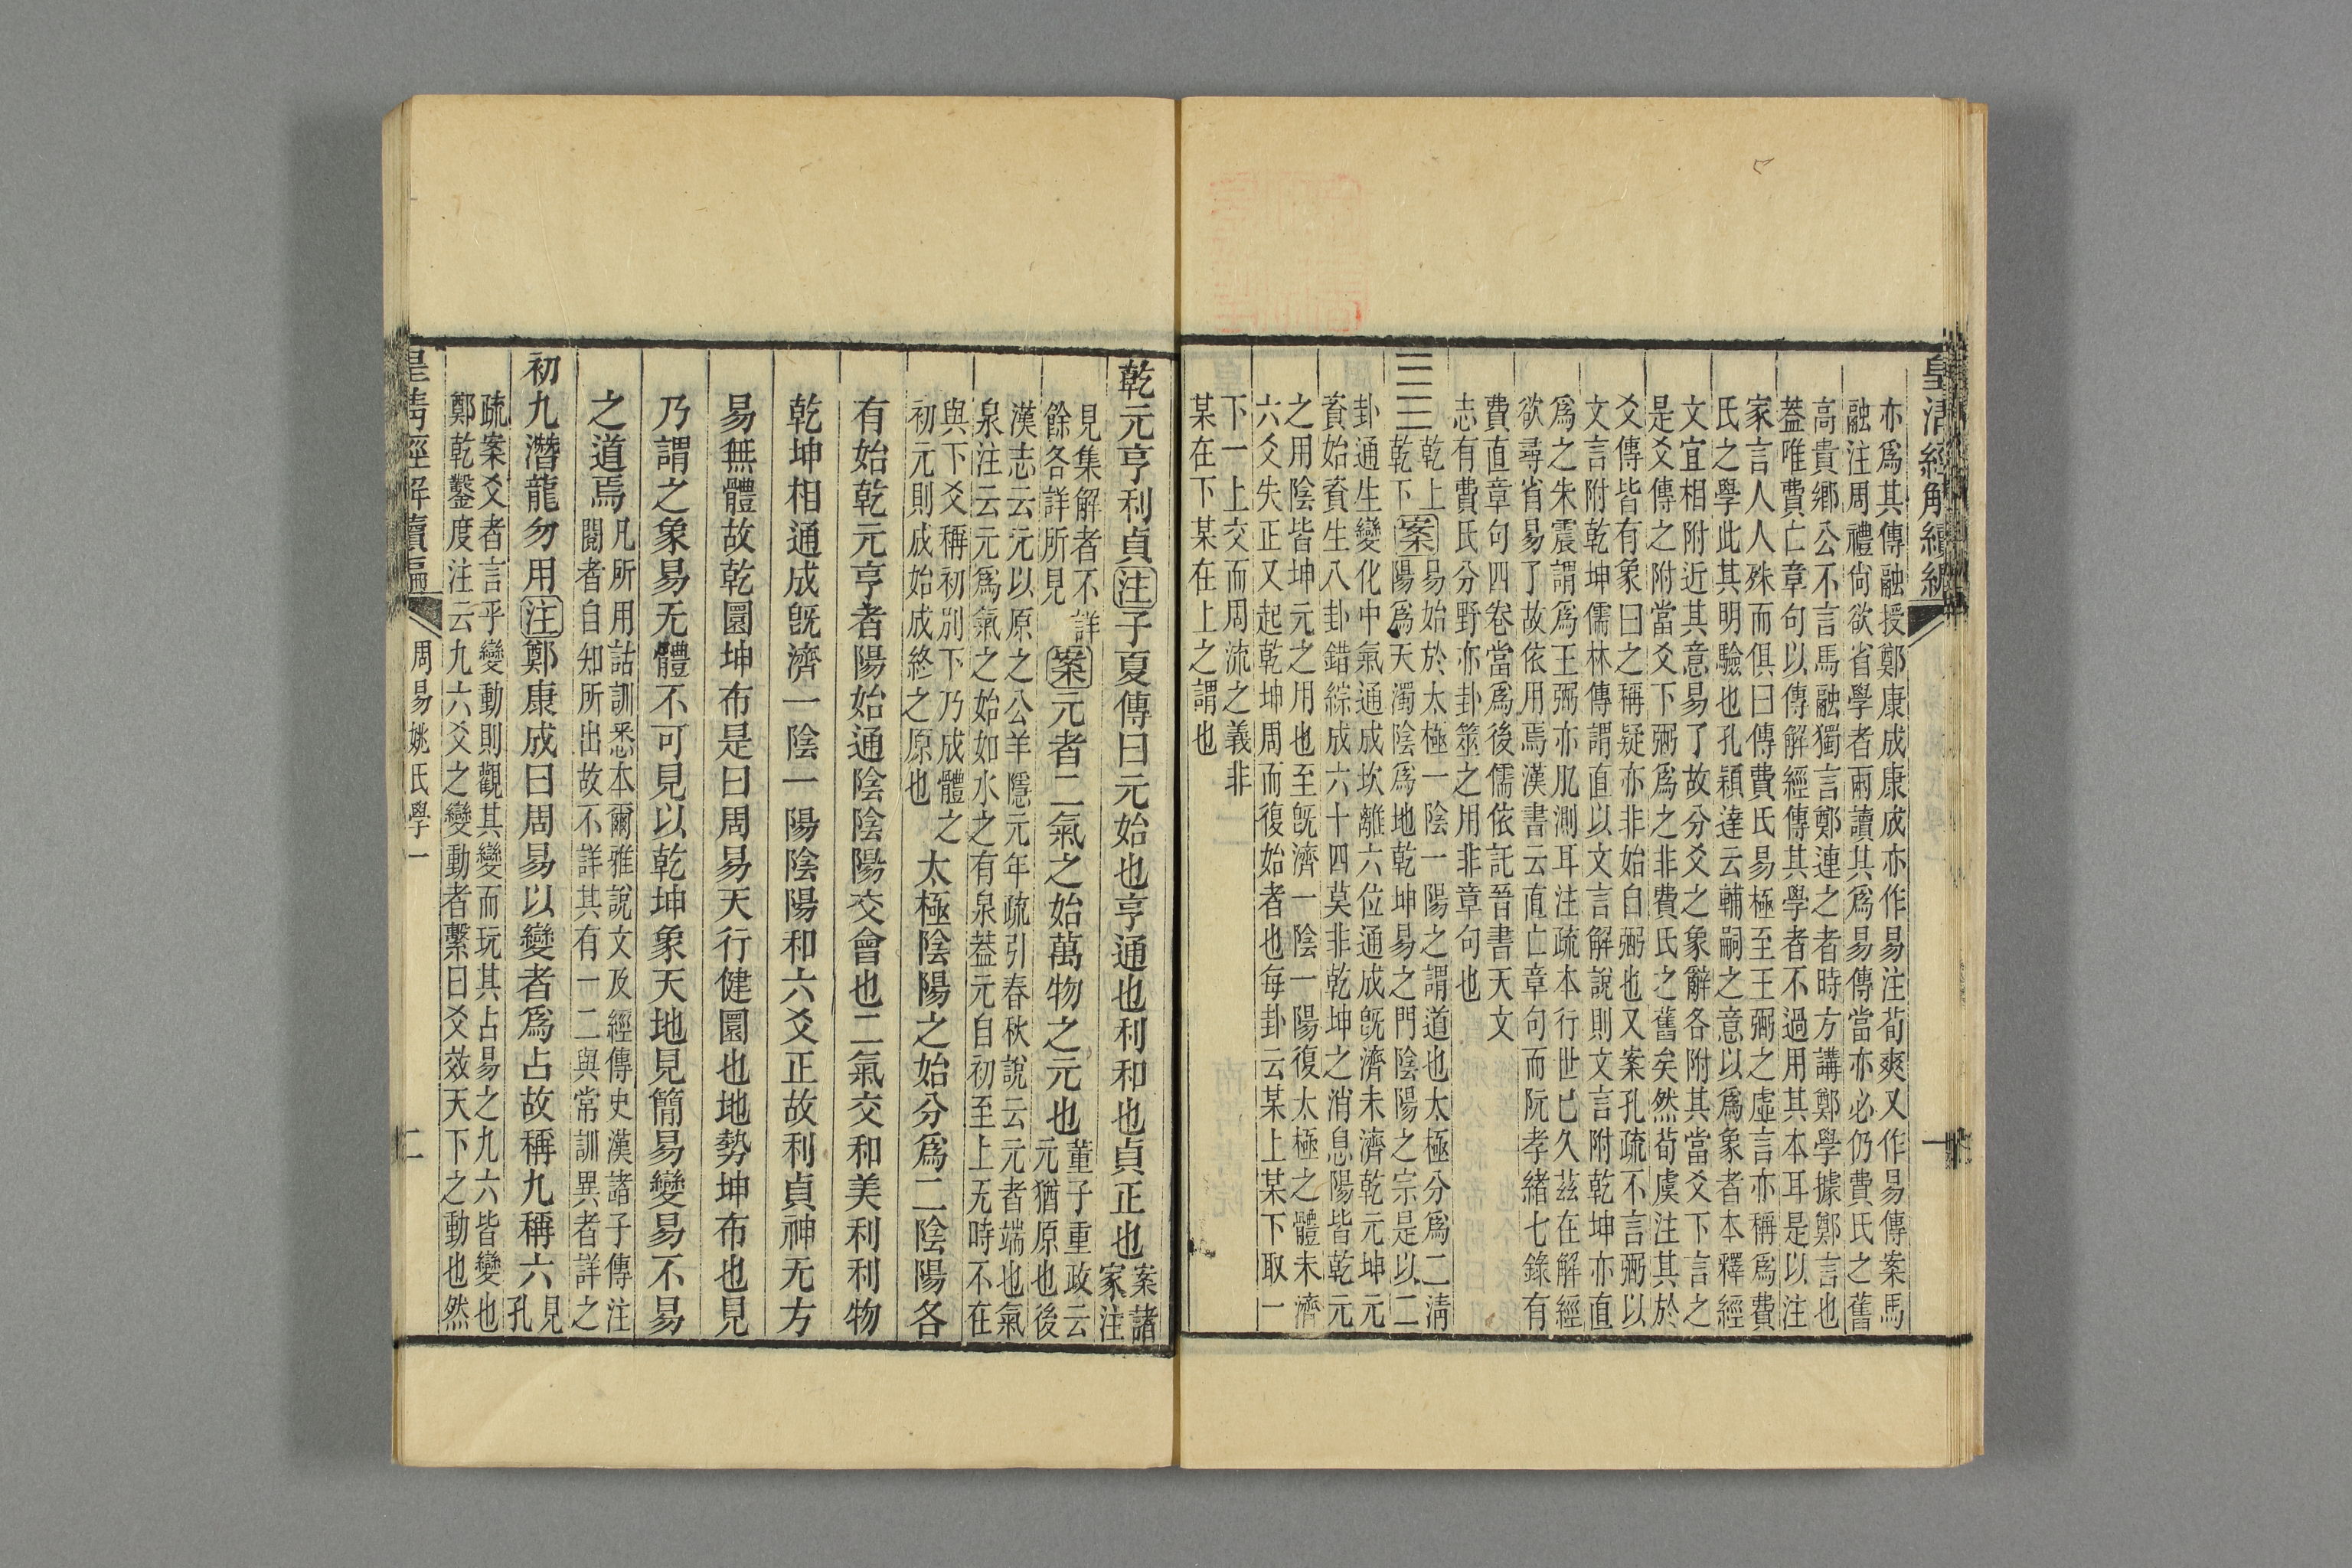 皇清經解續編
一
亦爲其傳融授鄭康成康成亦作易注荀爽又作易傳案馬
融注周禮尙欲省學者兩讀其爲易傳當亦必仍費氏之舊
高貴鄕公不言馬融獨言鄭連之者時方講鄭學據鄭言也
葢唯費亡章句以傳解經傳其學者不過用其本耳是以注
家言人人殊而俱曰傳費氏易極至王弼之虛言亦稱爲費
氏之學此其明驗也孔穎達云輔嗣之意以爲象者本釋經
文宜相附近其意易了故分爻之象辭各附其當爻下言之
是爻傳之附當爻下弼爲之非費氏之舊矣然荀虞注其於
爻傳皆有象曰之稱疑亦非始自弼也又案孔疏不言弼以
文言附乾坤儒林傳謂直以文言解說則文言附乾坤亦直
爲之朱震謂爲王弼亦肊測耳注疏本行世已久茲在解經
欲尋省易了故依用焉漢書云直亡章句而阮孝緒七錄有
費直章句四卷當爲後儒依託晉書天文
志有費氏分野亦卦筮之用非章句也
乾上
乾下
案
易始於太極一陰一陽之謂道也太極分爲二淸
陽爲天濁陰爲地乾坤易之門陰陽之宗是以二
卦通生變化中氣通成坎離六位通成旣濟未濟乾元坤元
資始資生八卦錯綜成六十四莫非乾坤之消息陽皆乾元
之用陰皆坤元之用也至旣濟一陰一陽復太極之體未濟
六爻失正又起乾坤周而復始者也每卦云某上某下取一
下一上交而周流之義非
某在下某在上之謂也
乾元亨利貞注子夏傳曰元始也亨通也利和也貞正也
案諸
家注
見集解者不詳
餘各詳所見
案元者二氣之始萬物之元也
董子重政云
元猶原也後
漢志云元元以原之公羊隱元年疏引春秋說云元者端也氣
泉注云元爲氣之始如水之有泉葢元自初至上无時不在
與下爻稱初別下乃成體之
初元則成始成終之原也
太極陰陽之始分爲二陰陽各
有始乾元亨者陽始通陰陰陽交會也二氣交和美利利物
乾坤相通成旣濟一陰一陽陰陽和六爻正故利貞神无方
易無體故乾圜坤布是曰周易天行健圜也地勢坤布也見
乃謂之象易无體不可見以乾坤象天地見簡易變易不易
之道焉
凡所用詁訓悉本爾雅說文及經傳史漢諸子傳注
閱者自知所出故不詳其有一二與常訓異者詳之
初九潛龍勿用注鄭康成曰周易以變者爲占故稱九稱六
見
孔
疏案爻者言乎變動則觀其變而玩其占易之九六皆變也
鄭乾鑿度注云九六爻之變動者繫曰爻效天下之動也然
皇清經解續編
周易姚氏學一
二